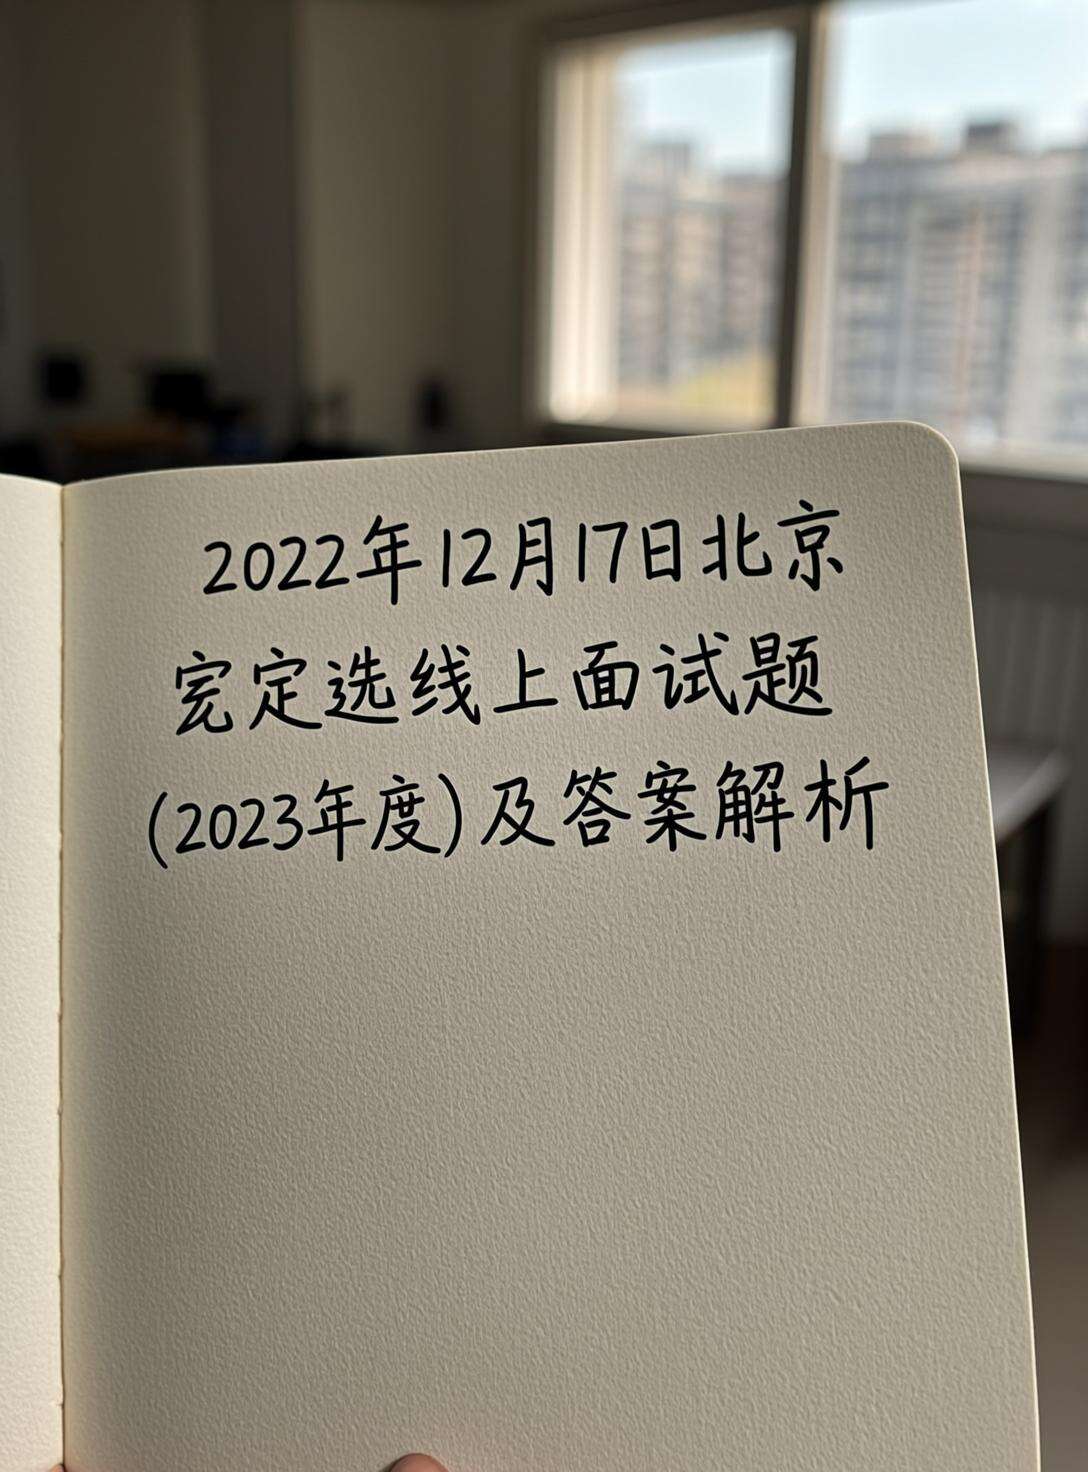 2022年12月17日北京
定选线上面试题
(2023年度)及答案解析